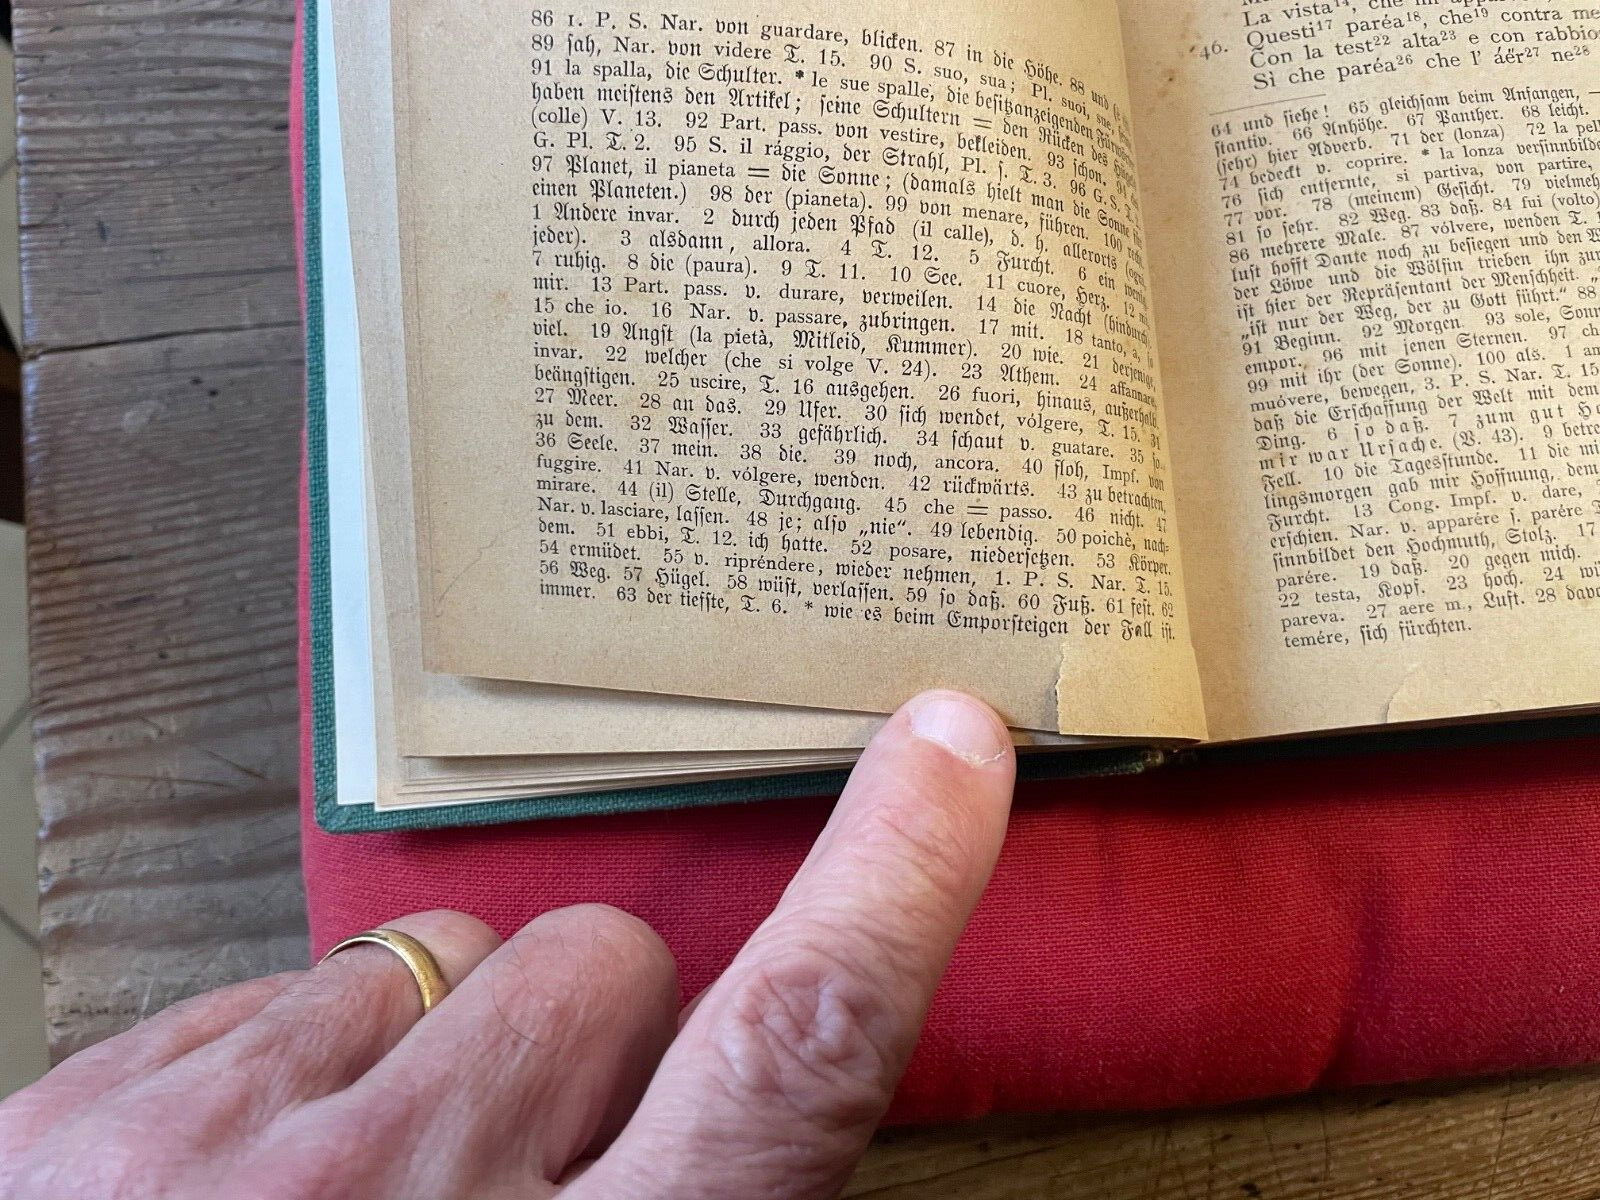 86 1. P. S. Nar. von guardare, blicken. 87 in die Höhe. 88 und
89 sah, Nar. von videre T. 15. 90 S. suo, sua; Pl. suoi, sue,
91 la spalla, die Schulter. * le sue spalle, die besitzanzeigenden
haben meistens den Artikel; seine Schultern = den Rücken des
(colle) V. 13. 92 Part. pass. von vestire, bekleiden. 93 schon.
G. Pl. T. 2. 95 S. il rággio, der Strahl, Pl. s. T. 3. 96 G. S. T.
97 Planet, il pianeta = die Sonne; (damals hielt man die Sonne für
einen Planeten.) 98 der (pianeta). 99 von menare, führen. 100
1 Andere invar. 2 durch jeden Pfad (il calle), d. h. allerorts (ogni,
jeder). 3 alsdann, allora. 4 T. 12. 5 Furcht. 6 ein wenig.
7 ruhig. 8 die (paura). 9 T. 11. 10 See. 11 cuore, Herz. 12
mir. 13 Part. pass. v. durare, verweilen. 14 die Nacht (hindurch).
15 che io. 16 Nar. v. passare, zubringen. 17 mit. 18 tanto, a, so
viel. 19 Angst (la pietà, Mitleid, Kummer). 20 wie. 21 derjenige,
invar. 22 welcher (che si volge V. 24). 23 Athem. 24 affannare,
beängstigen. 25 uscire, T. 16 ausgehen. 26 fuori, hinaus, außerhalb.
27 Meer. 28 an das. 29 Ufer. 30 sich wendet, vólgere, T. 15. 31
zu dem. 32 Wasser. 33 gefährlich. 34 schaut v. guatare. 35 so.
36 Seele. 37 mein. 38 die. 39 noch, ancora. 40 floh, Impf. von
fuggire. 41 Nar. v. vólgere, wenden. 42 rückwärts. 43 zu betrachten,
mirare. 44 (il) Stelle, Durchgang. 45 che = passo. 46 nicht. 47
Nar. v. lasciare, lassen. 48 je; also „nie“. 49 lebendig. 50 poichè, nach-
dem. 51 ebbi, T. 12. ich hatte. 52 posare, niedersetzen. 53 Körper.
54 ermüdet. 55 v. ripréndere, wieder nehmen, 1. P. S. Nar. T. 15.
56 Weg. 57 Hügel. 58 wüst, verlassen. 59 so daß. 60 Fuß. 61 fest. 62
immer. 63 der tiefste, T. 6. * wie es beim Emporsteigen der Fall ist.
La vista¹⁴, che
Questi¹⁷ paréa¹⁸, che¹⁹ contra me
46. Con la test²² alta²³ e con rabbio
Si che paréa²⁶ che l' áër²⁷ ne²⁸
64 und siehe! 65 gleichsam beim Anfangen,
stantiv. 66 Anhöhe. 67 Panther. 68 leicht.
(sehr) hier Adverb. 71 der (lonza) 72 la pel
74 bedeckt v. coprire. * la lonza versinnbilde
76 sich entfernte, si partiva, von partire,
77 vor. 78 (meinem) Gesicht. 79 vielmeh
81 so sehr. 82 Weg. 83 daß. 84 fui (volto)
86 mehrere Male. 87 vólvere, wenden T. 1
lust hofft Dante noch zu besiegen und den W
der Löwe und die Wölfin trieben ihn zur
ist hier der Repräsentant der Menschheit.
„ist nur der Weg, der zu Gott führt.“ 88
91 Beginn. 92 Morgen. 93 sole, Sonn
empor. 96 mit jenen Sternen. 97 ch
99 mit ihr (der Sonne). 100 als. 1 am
muóvere, bewegen, 3. P. S. Nar. T. 15
daß die Erschaffung der Welt mit dem
Ding. 6 so daß. 7 zum gut Ho
mir war Ursache. (V. 43). 9 betre
Fell. 10 die Tagesstunde. 11 die mi
lingsmorgen gab mir Hoffnung, dem
Furcht. 13 Cong. Impf. v. dare,
erschien. Nar. v. apparére s. parére T
sinnbildet den Hochmuth, Stolz. 17
parére. 19 daß. 20 gegen mich.
22 testa, Kopf. 23 hoch. 24 wü
pareva. 27 aere m., Luft. 28 davo
temére, sich fürchten.